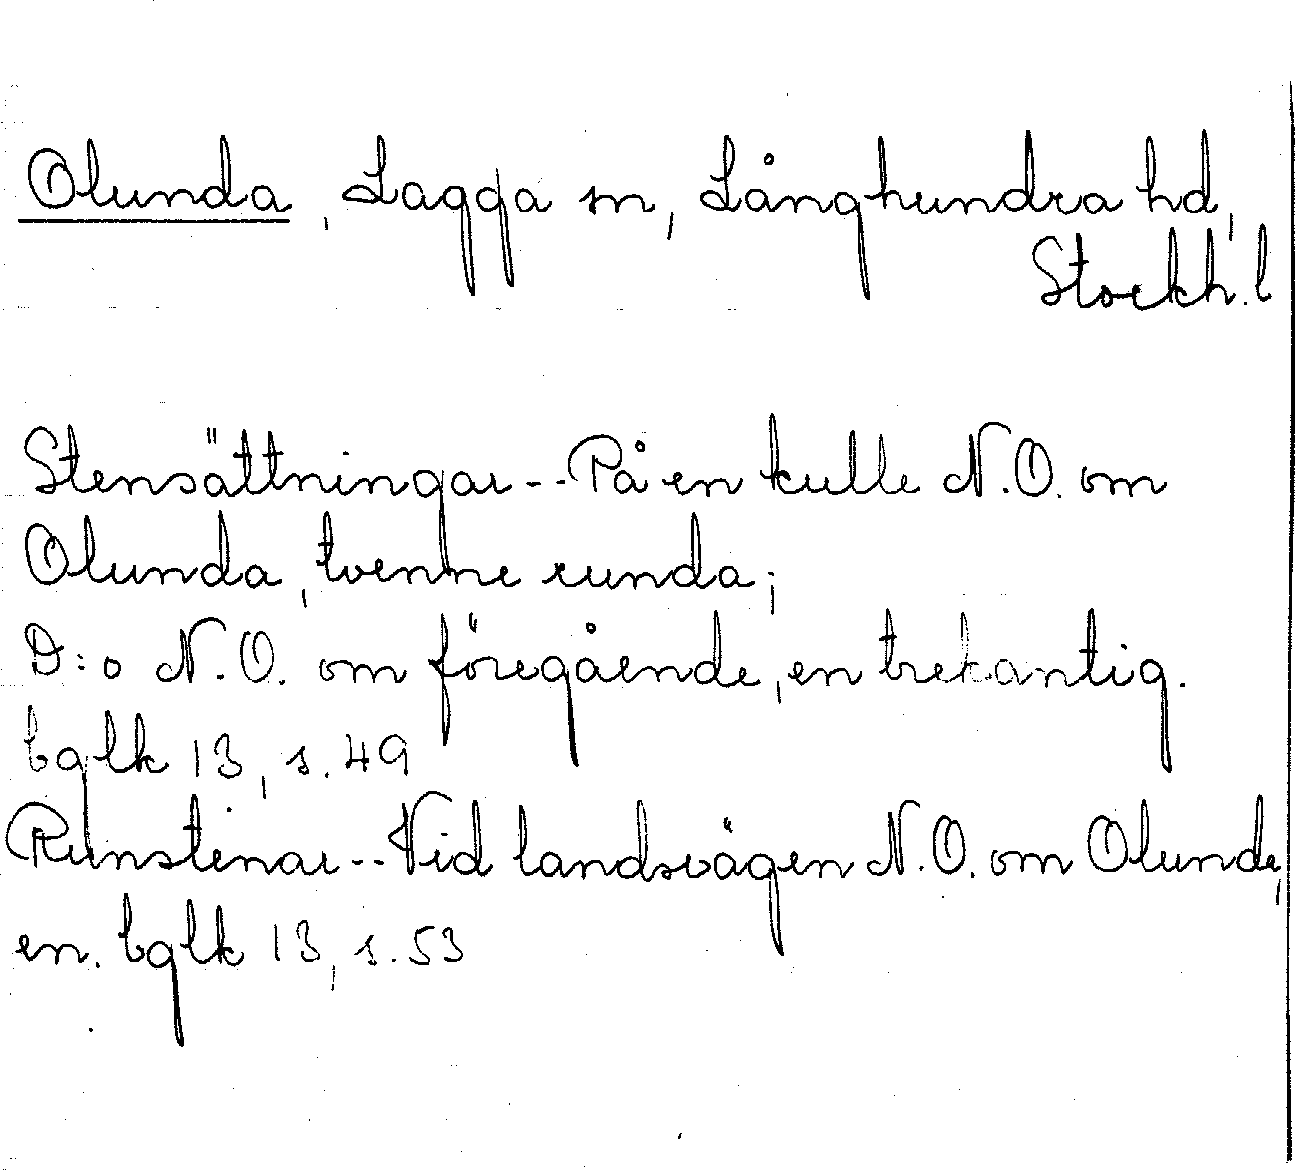 Olunda, Lagga sn, Långhundra hd,
Stockh. l
Stensättningar -- På en kulle N.O. om
Olunda, tvenne runda;
D:o N.O. om föregående, en trekantig.
bglk 13, s. 49
Runstenar -- Vid landsvägen N.O. om Olunda,
en. bglk 13, s. 53